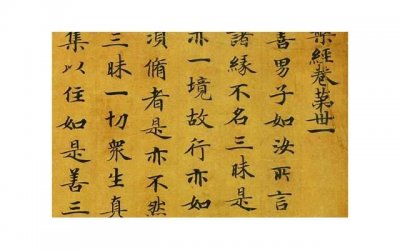 經卷第卅一
善男子如汝所言
諸緣不名三昧是
亦一境故行亦如
須脩者是亦不然
三昧一切衆生真
集以住如是善三